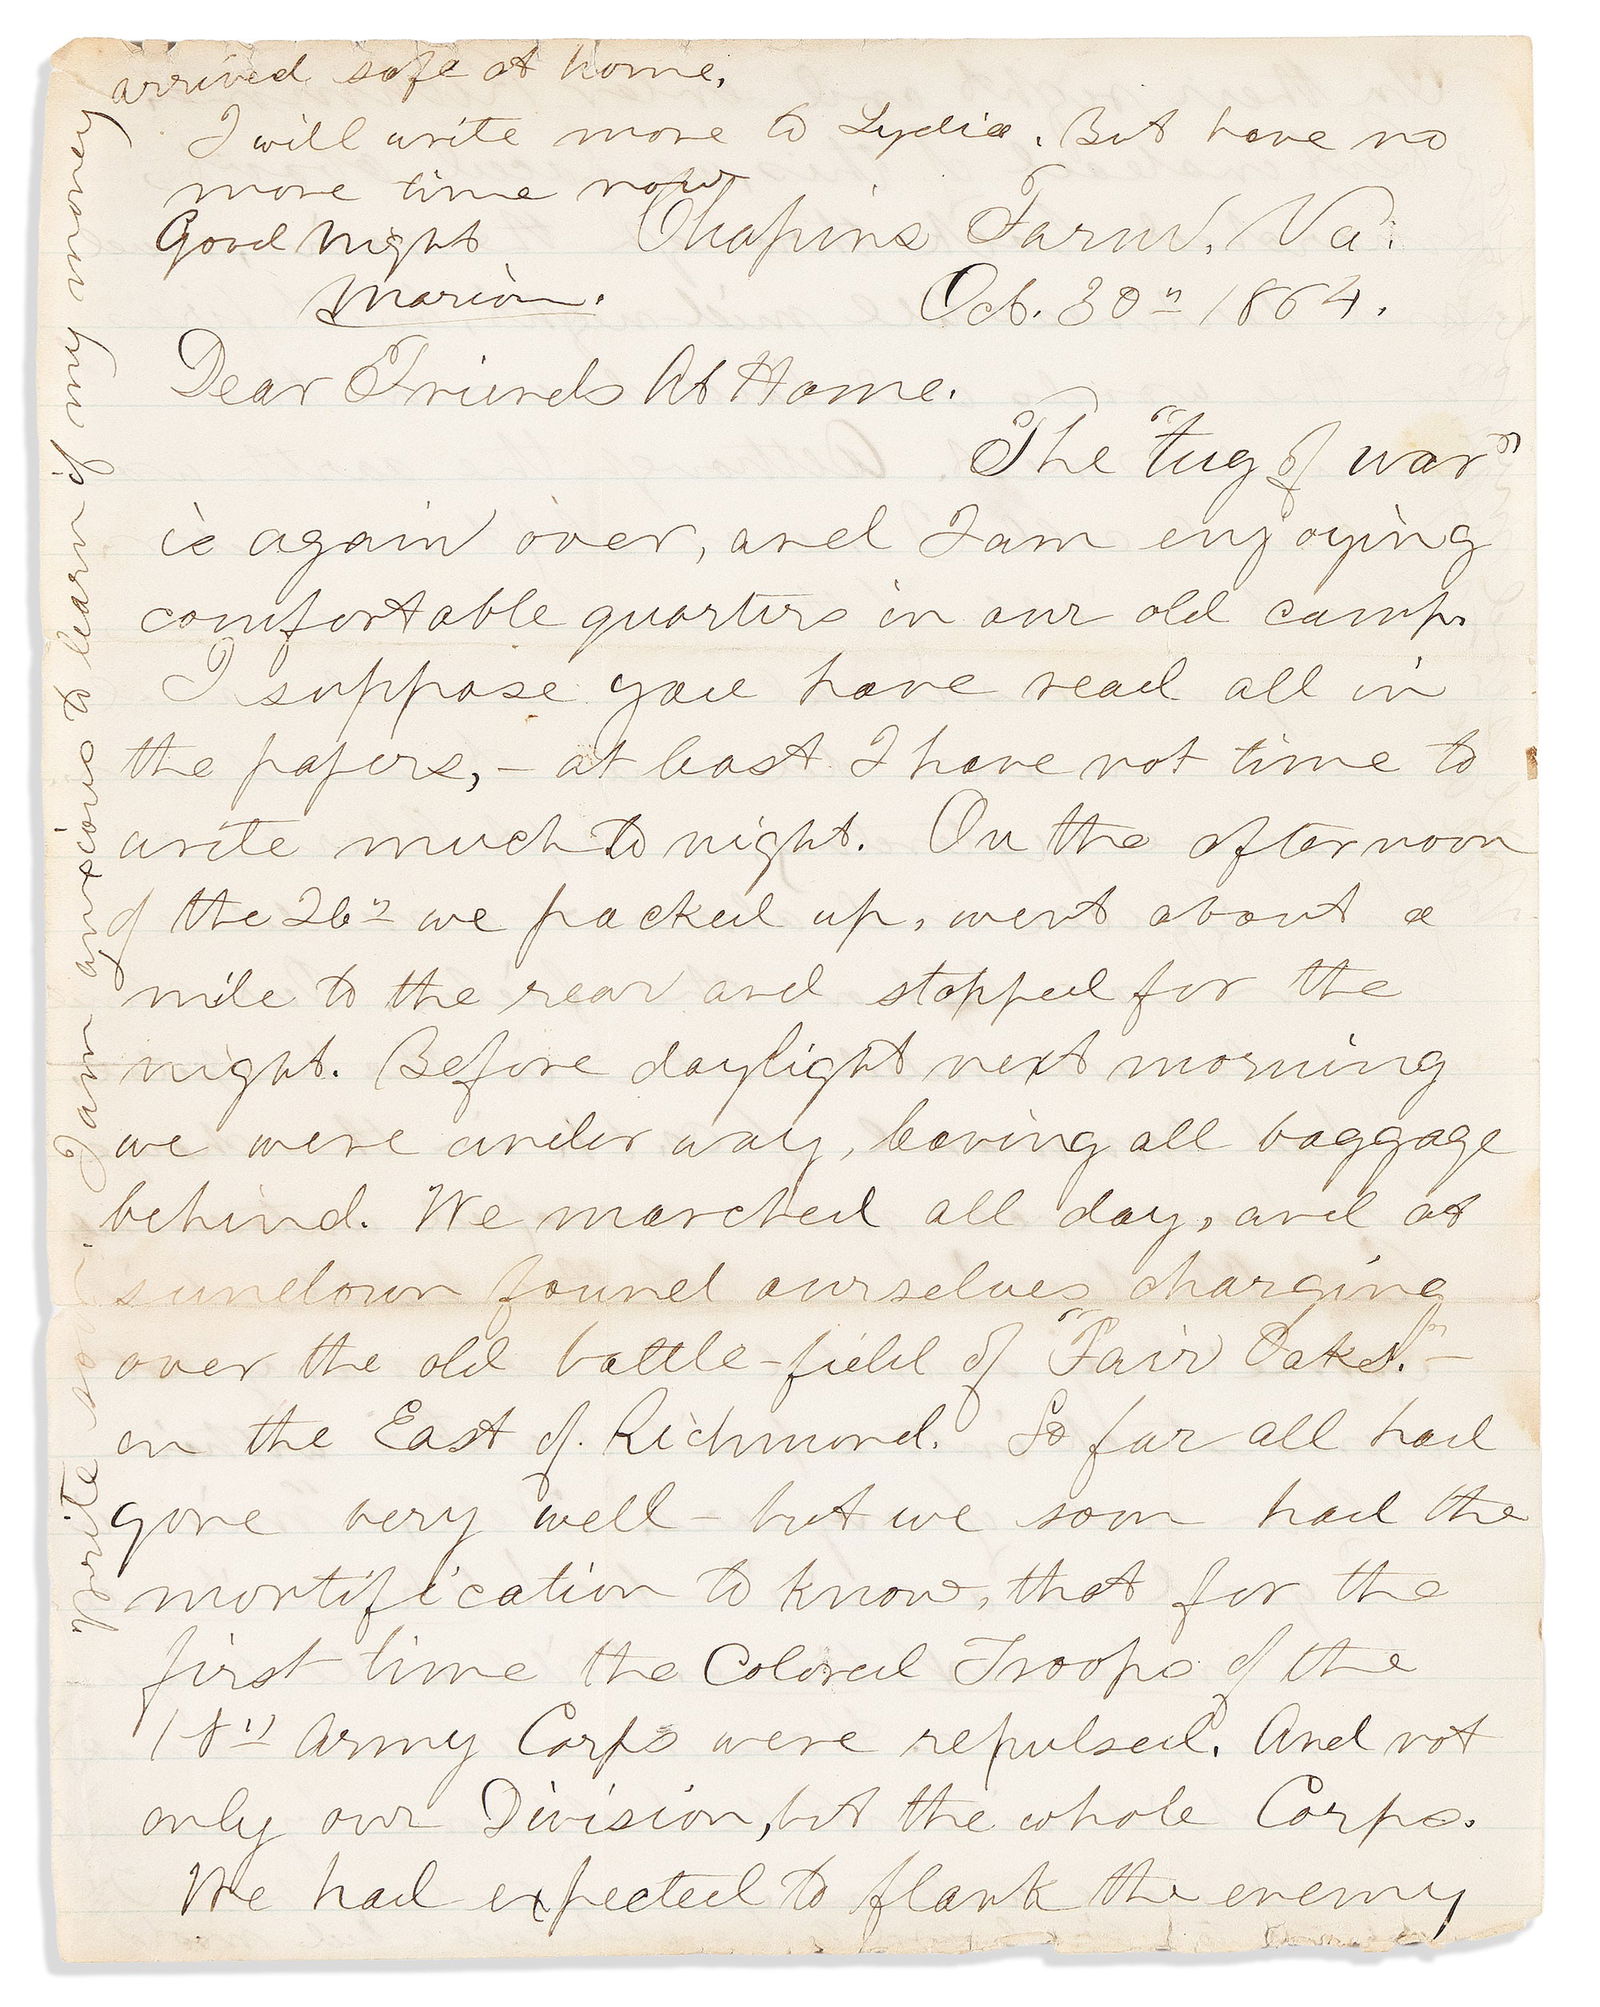 Write soon. I am anxious to learn if my money
arrived safe at home.
I will write more to Lydia. But have no
more time now
Good Night
Marion.
Chapins Farm, Va.
Oct. 30" 1864.
Dear Friends At Home.
The "tug of war"
is again over, and I am enjoying
comfortable quarters in our old camp.
I suppose you have read all in
the papers,- at least I have not time to
write much to night. On the afternoon
of the 26" we packed up, went about a
mile to the rear and stopped for the
night. Before daylight next morning
we were under way, leaving all baggage
behind. We marched all day, and at
sundown found ourselves charging
over the old battle-field of "Fair Oaks." -
on the East of Richmond. So far all had
gone very well - but we soon had the
mortification to know, that for the
first time the Colored Troops of the
18" Army Corps were repulsed. And not
only our Division, but the whole Corps.
We had expected to flank the enemy